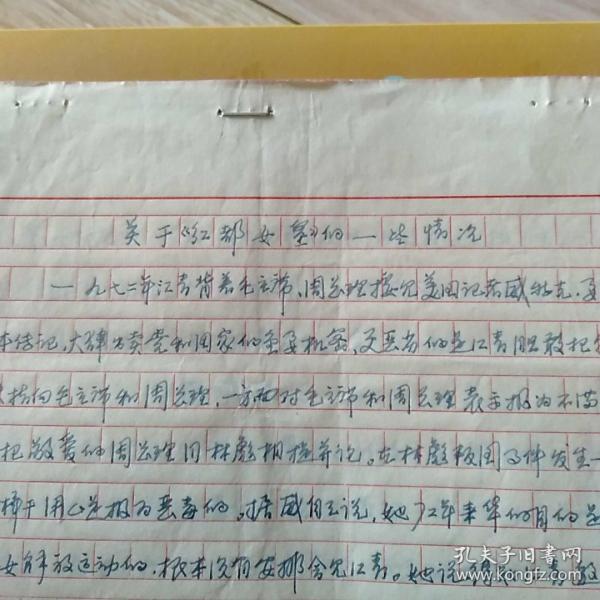 关于《红都女皇》的一些情况
一九七二年江青背着毛主席、周总理接见美国记者威特克,
本传记,大肆出卖党和国家的重要机密,更恶劣的是江青胆敢把
指向毛主席和周总理,一方面对毛主席和周总理表示极为不满
把敬爱的周总理同林彪相提并论。在林彪叛国事件发生一
用心是极为恶毒的。据威自己说,她72年来华的目的是
女解放运动的,根本没有安排会见江青。她说
孔夫子旧书网
www.kongfz.com